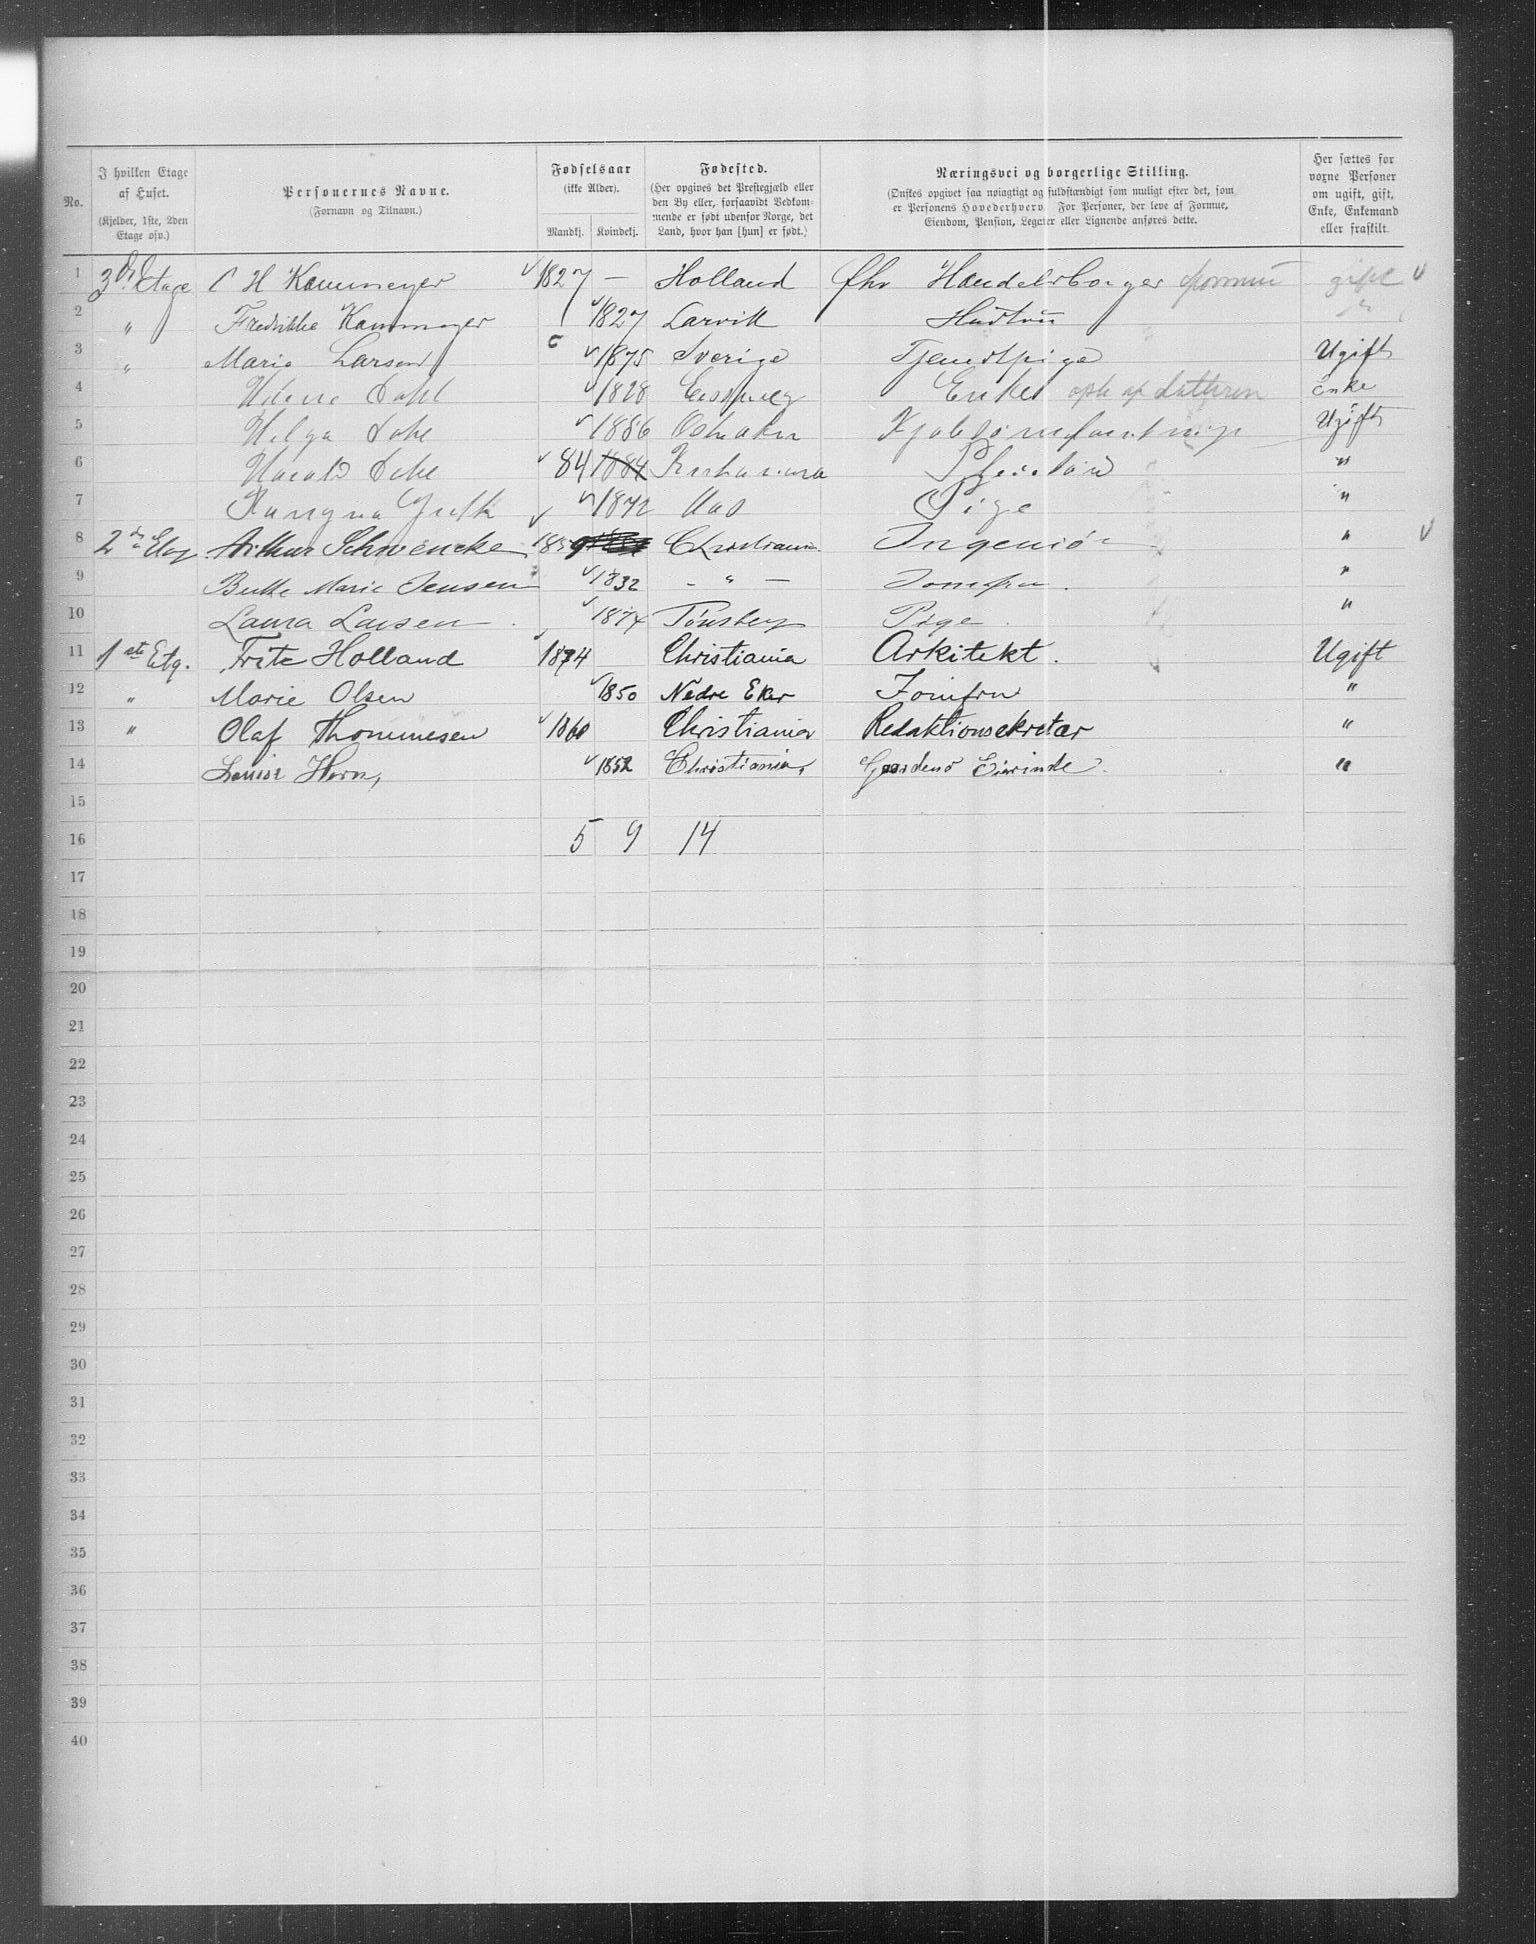 No.
I hvilken Etage af Huset. (Kjelder, 1ste, 2den Etage osv.)
Personernes Navne. (Fornavn og Tilnavn.)
Fødselsaar (ikke Alder). Mandkj. Kvindekj.
Fødested. (Her opgives det Prestegjæld eller den By eller, forsaavidt Vedkommende er født udenfor Norge, det Land, hvor han [hun] er født.)
Næringsvei og borgerlige Stilling. (Ønskes opgivet saa nøiagtigt og fuldstændigt som muligt efter det, som er Personens Hovederhverv. For Personer, der leve af Formue, Eiendom, Pension, Legater eller Lignende anføres dette.
Her sættes for voxne Personer om ugift, gift, Enke, Enkemand eller fraskilt.
1 3d. Etage C H Kammeyer 1827 — Holland fhv Handelsborger formue gift
2 " Fredrikke Kammeyer 1827 Larvik Hustru
3 " Marie Larsen 1875 Sverige Tjenestpige Ugift
4 Dahl 1828 Enke af datteren Enke
5 Helga 1886 Ugift
6 Harald 84 1884 "
7 1872 Pige "
8 2den Etag. Arthur Schwencke 1859 Christiania Ingeniør "
9 Marie Jensen 1832 - " - Jomfru. "
10 Laura Larsen 1874 Tønsberg Pige. "
11 1ste Etg. Fritz Holland 1874 Christiania Arkitekt. Ugift
12 " Marie Olsen 1850 Nedre Eker Jomfru "
13 " Olaf Thommesen 1860 Christiania Redaktionsekretær "
14 Louise Horn, 1852 Christiania, Gaardens Eierinde. "
15
16 5 9 14
17
18
19
20
21
22
23
24
25
26
27
28
29
30
31
32
33
34
35
36
37
38
39
40